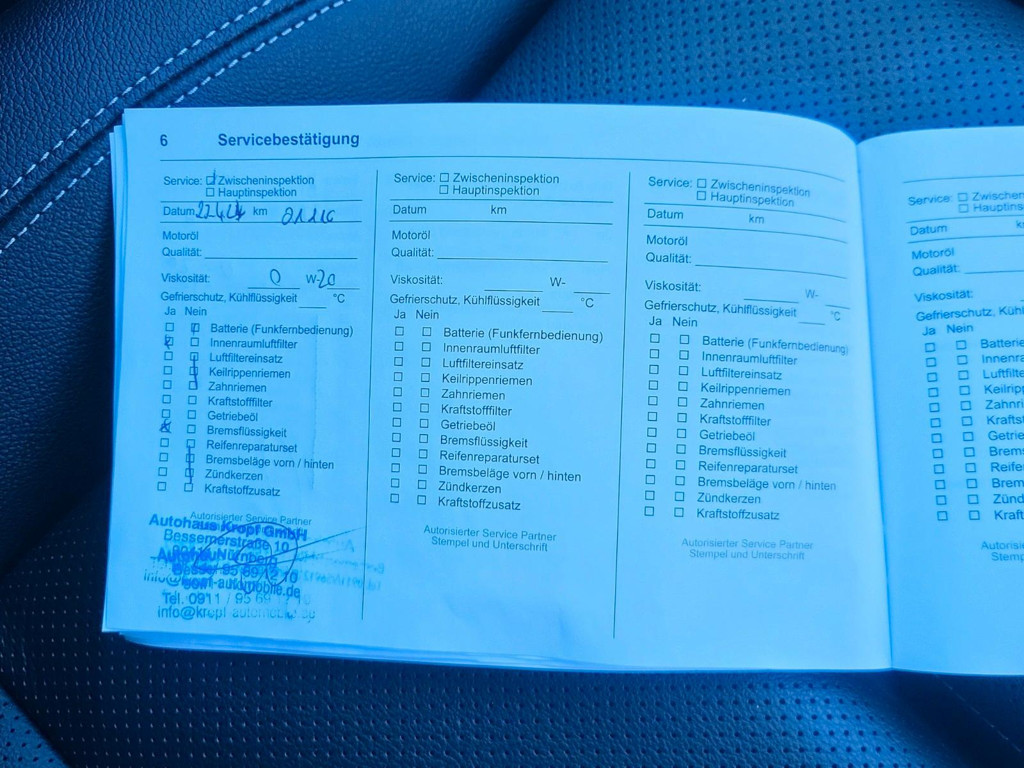 6 Servicebestätigung
Service: ☐ Zwischeninspektion
☐ Hauptinspektion
Datum km 21116
Motoröl
Qualität:
Viskosität: 0 W-20
Gefrierschutz, Kühlflüssigkeit °C
Ja Nein
Batterie (Funkfernbedienung)
Innenraumluftfilter
Luftfiltereinsatz
Keilrippenriemen
Zahnriemen
Kraftstofffilter
Getriebeöl
Bremsflüssigkeit
Reifenreparaturset
Bremsbeläge vorn / hinten
Zündkerzen
Kraftstoffzusatz
Autorisierter Service Partner
Autohaus Kropf GmbH
Bessemerstraße 10
Nürnberg
Tel. 0911 / 95 69
info@kropf-automobile.de
Service: ☐ Zwischeninspektion
☐ Hauptinspektion
Datum km
Motoröl
Qualität:
Viskosität: W-
Gefrierschutz, Kühlflüssigkeit °C
Ja Nein
Batterie (Funkfernbedienung)
Innenraumluftfilter
Luftfiltereinsatz
Keilrippenriemen
Zahnriemen
Kraftstofffilter
Getriebeöl
Bremsflüssigkeit
Reifenreparaturset
Bremsbeläge vorn / hinten
Zündkerzen
Kraftstoffzusatz
Autorisierter Service Partner
Stempel und Unterschrift
Service: ☐ Zwischeninspektion
☐ Hauptinspektion
Datum km
Motoröl
Qualität:
Viskosität: W-
Gefrierschutz, Kühlflüssigkeit °C
Ja Nein
Batterie (Funkfernbedienung)
Innenraumluftfilter
Luftfiltereinsatz
Keilrippenriemen
Zahnriemen
Kraftstofffilter
Getriebeöl
Bremsflüssigkeit
Reifenreparaturset
Bremsbeläge vorn / hinten
Zündkerzen
Kraftstoffzusatz
Autorisierter Service Partner
Stempel und Unterschrift
Service: ☐ Zwischen
☐ Hauptins
Datum k
Motoröl
Qualität:
Viskosität:
Gefrierschutz, Kühl
Ja Nein
Batterie
Innenra
Luftfilte
Keilripp
Zahnri
Krafts
Getrie
Brems
Reife
Brem
Zünd
Kraft
Autoris
Stemp